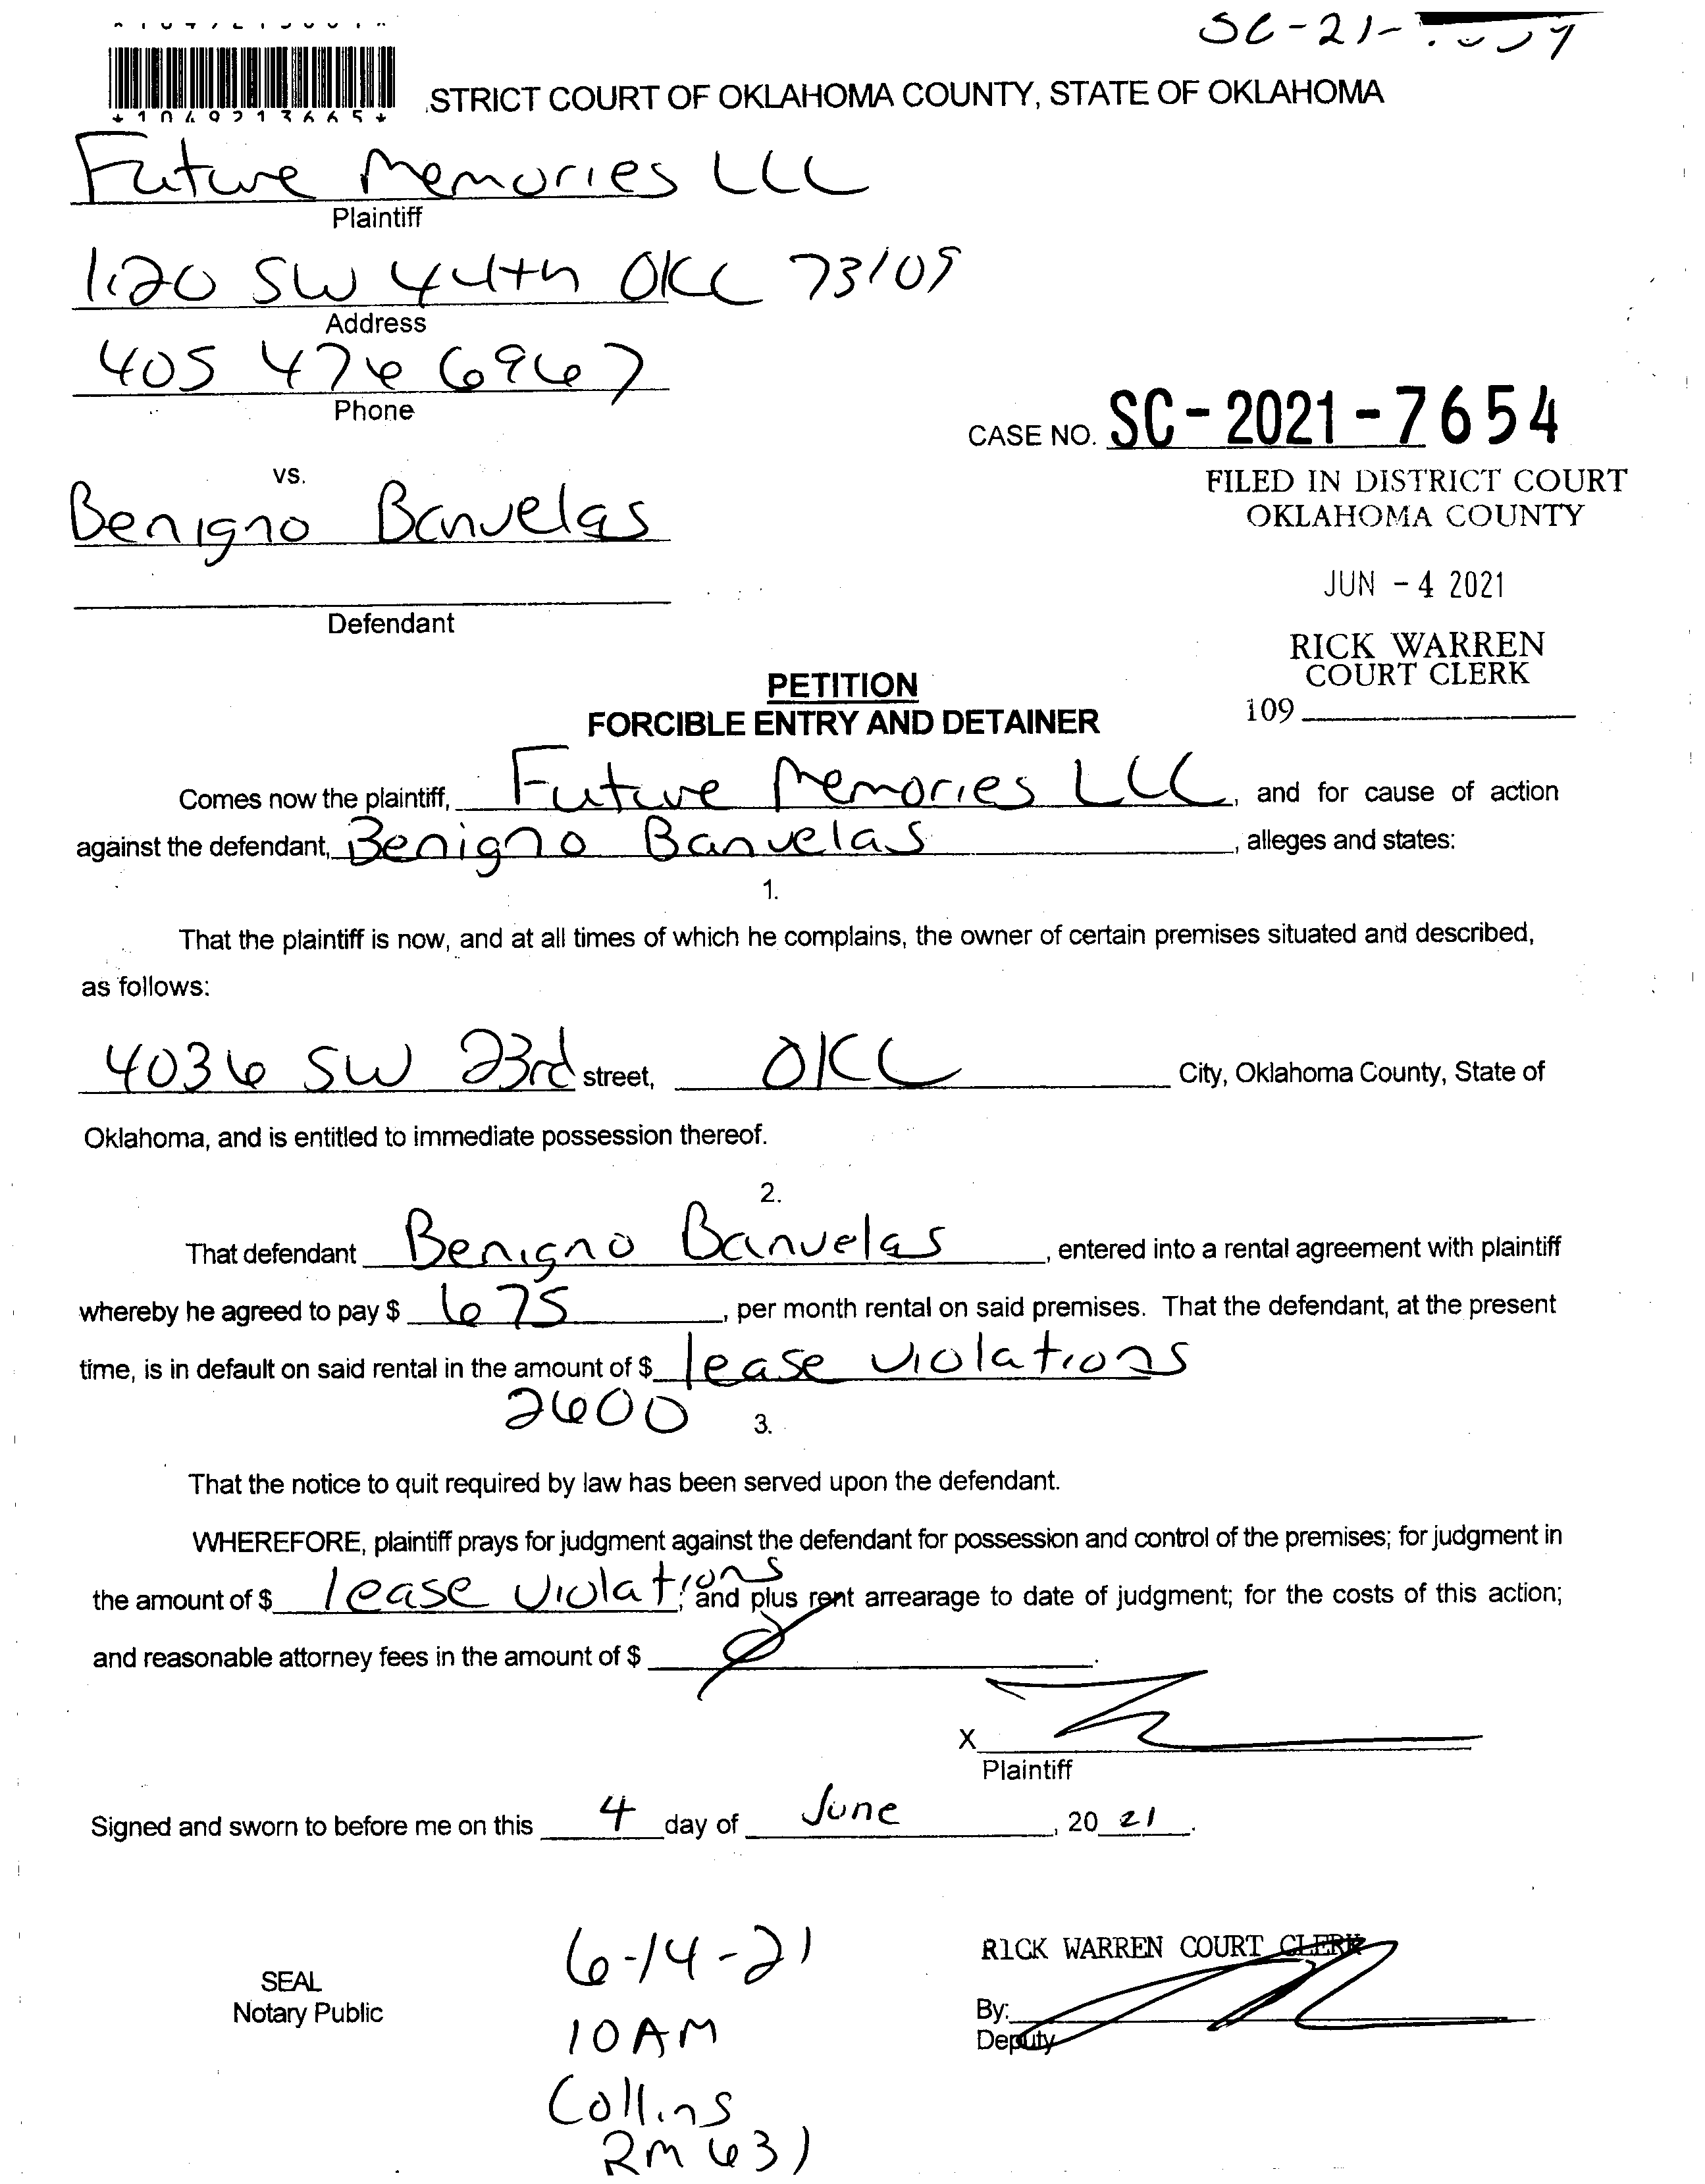 SC-21-
STRICT COURT OF OKLAHOMA COUNTY, STATE OF OKLAHOMA
Future Memories LLC
Plaintiff
1120 SW 44th OKC 73109
Address
405 476 6967
Phone
CASE NO. SC-2021-7654
vs.
FILED IN DISTRICT COURT
OKLAHOMA COUNTY
Benigno Banuelas
JUN - 4 2021
Defendant
RICK WARREN
COURT CLERK
109
PETITION
FORCIBLE ENTRY AND DETAINER
Comes now the plaintiff, Future Memories LLC, and for cause of action
against the defendant, Benigno Banuelas, alleges and states:
1.
That the plaintiff is now, and at all times of which he complains, the owner of certain premises situated and described,
as follows:
4036 SW 23rd street, OKC City, Oklahoma County, State of
Oklahoma, and is entitled to immediate possession thereof.
2.
That defendant Benigno Banuelas, entered into a rental agreement with plaintiff
whereby he agreed to pay $ 675, per month rental on said premises. That the defendant, at the present
time, is in default on said rental in the amount of $ lease violations
2600
3.
That the notice to quit required by law has been served upon the defendant.
WHEREFORE, plaintiff prays for judgment against the defendant for possession and control of the premises; for judgment in
the amount of $ lease violations; and plus rent arrearage to date of judgment; for the costs of this action;
and reasonable attorney fees in the amount of $ Ø.
X
Plaintiff
Signed and sworn to before me on this 4 day of June, 20 21.
SEAL
Notary Public
6-14-21
10 AM
Collins
Rm 631
RICK WARREN COURT CLERK
By:
Deputy